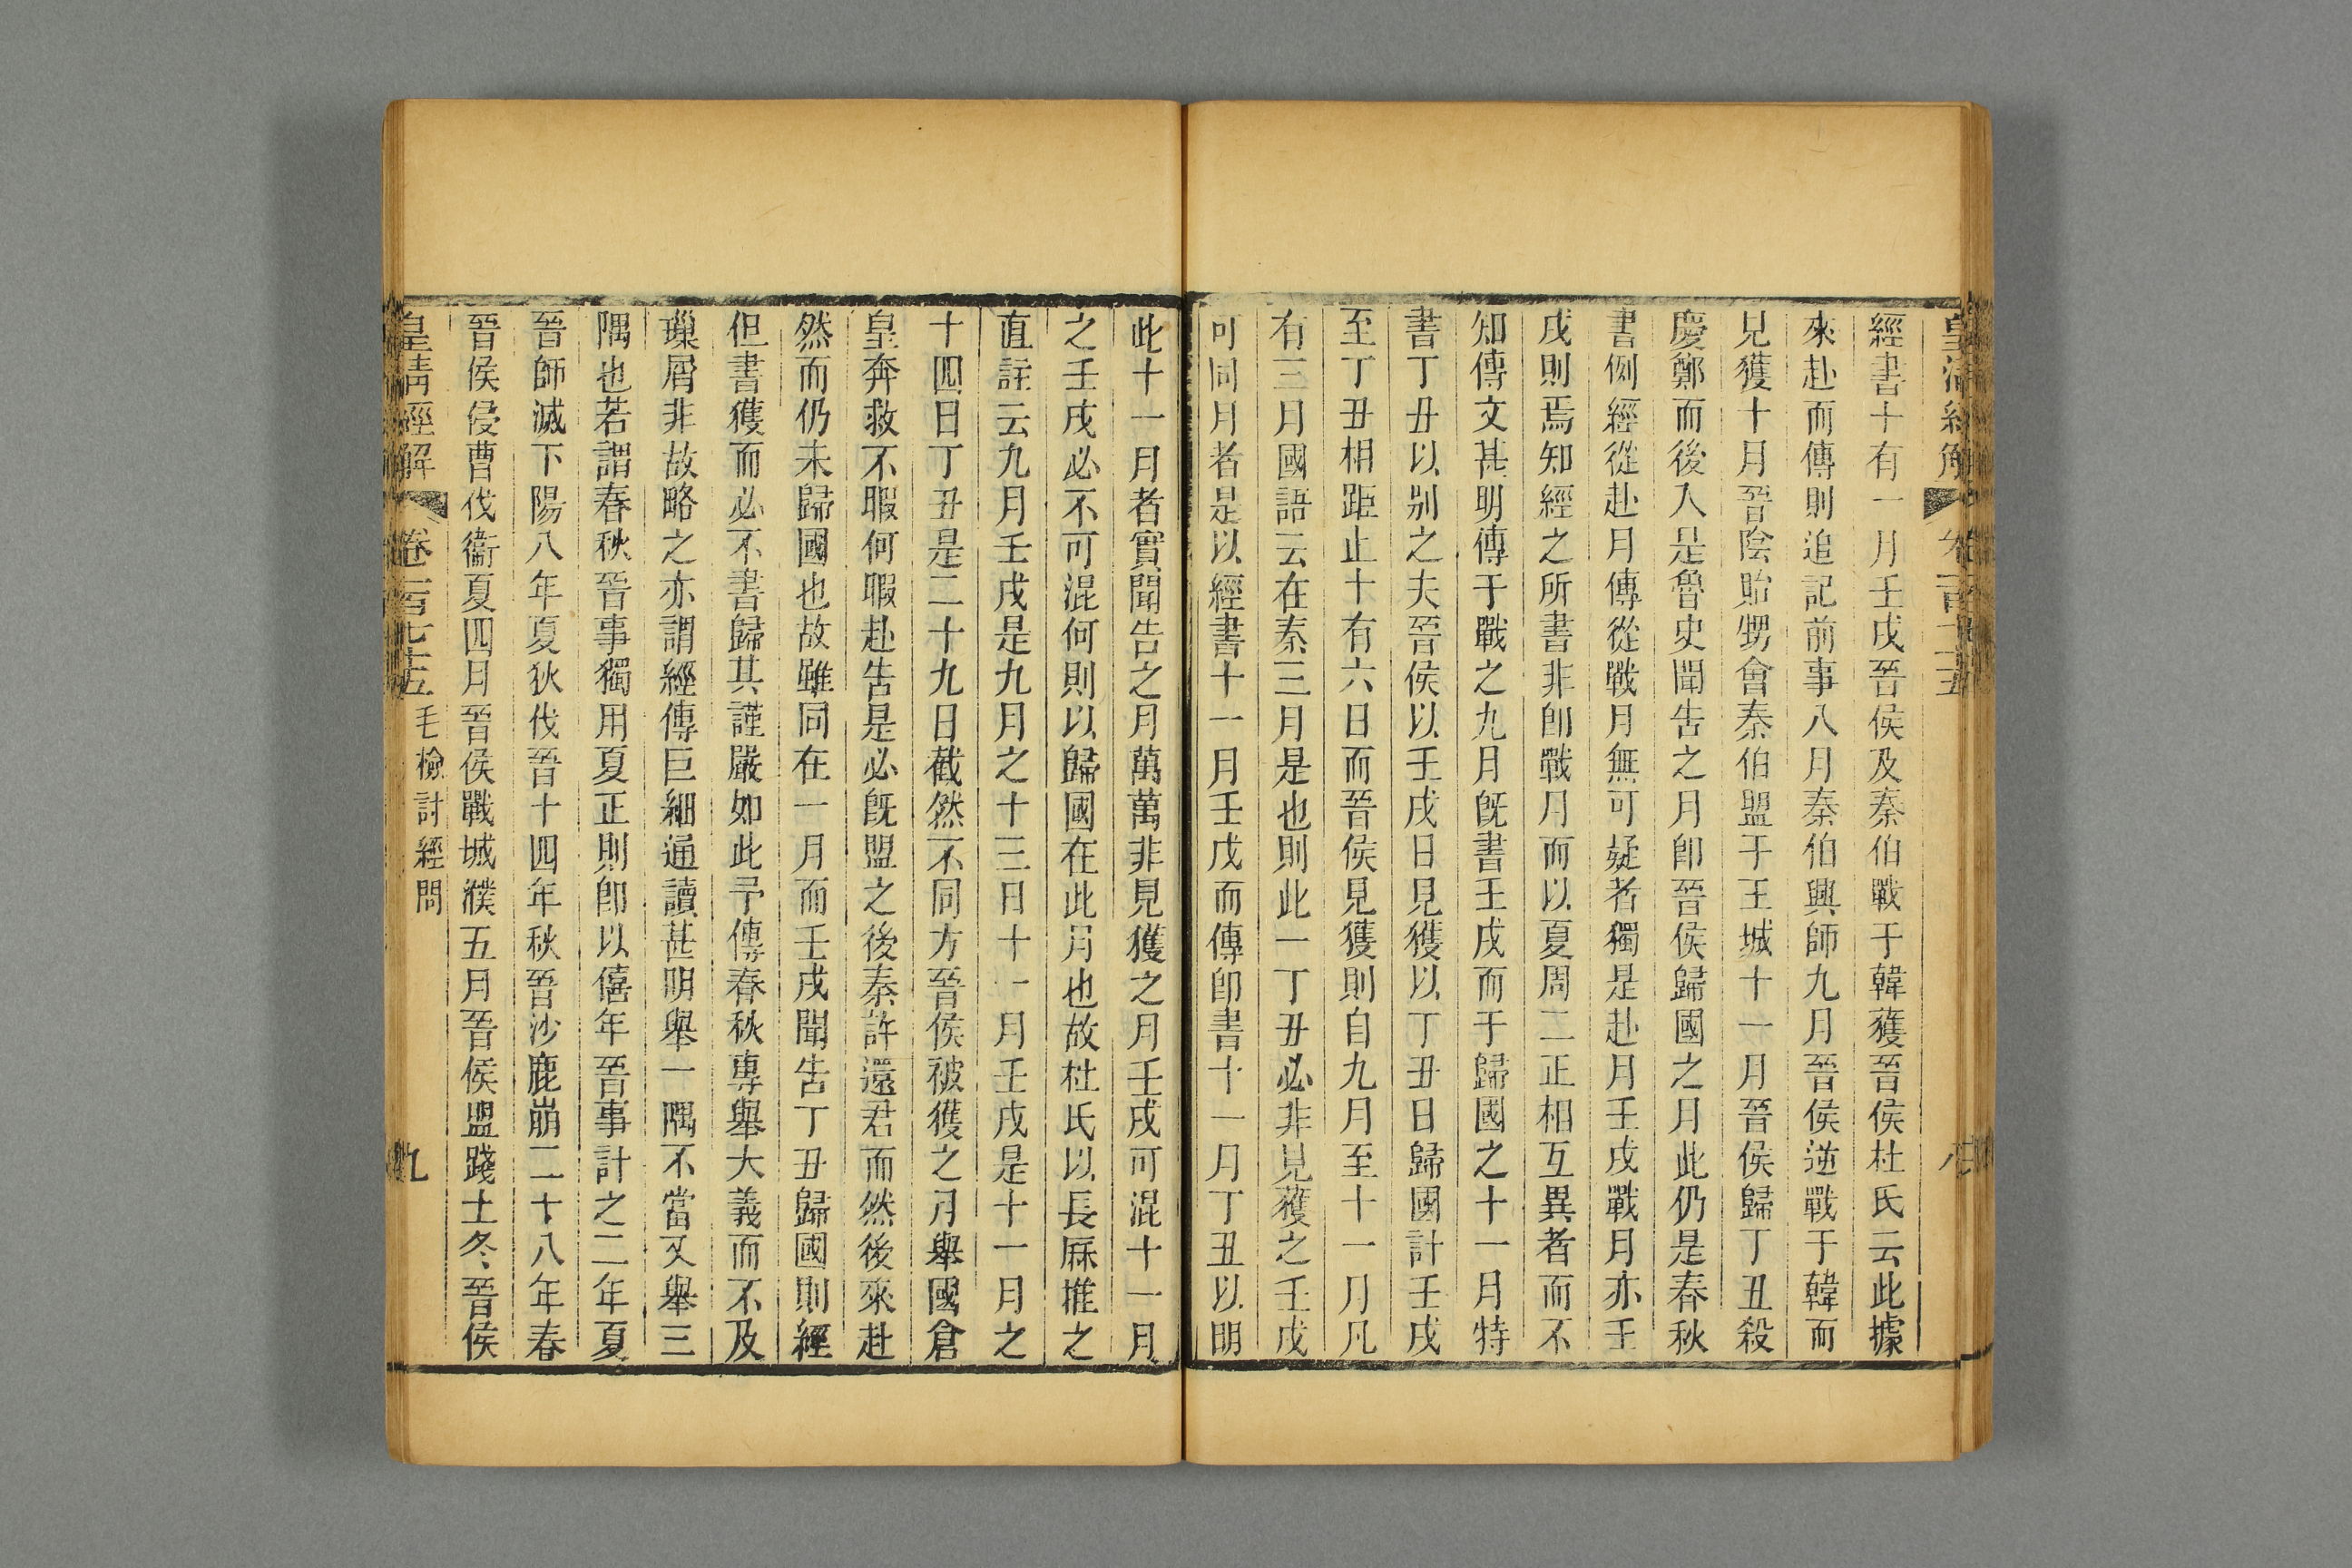 經書十有一月壬戌晉侯及秦伯戰于韓獲晉侯杜氏云此據
來赴而傳則追記前事八月秦伯興師九月晉侯逆戰于韓而
見獲十月晉陰貽甥會秦伯盟于王城十一月晉侯歸丁丑殺
慶鄭而後入是魯史聞告之月卽晉侯歸國之月此仍是春秋
書例經從赴月傳從戰月無可疑者獨是赴月壬戌戰月亦壬
戌則焉知經之所書非卽戰月而以夏周二正相互異者而不
知傳文甚明傳于戰之九月旣書壬戌而于歸國之十一月特
書丁丑以別之夫晉侯以壬戌日見獲以丁丑日歸國計壬戌
至丁丑相距止十有六日而晉侯見獲則自九月至十一月凡
有三月國語云在秦三月是也則此一丁丑必非見獲之壬戌
可同月者是以經書十一月壬戌而傳卽書十一月丁丑以明
此十一月者實聞告之月萬萬非見獲之月壬戌可混十一月
之壬戌必不可混何則以歸國在此月也故杜氏以長厤推之
直註云九月壬戌是九月之十三日十一月壬戌是十一月之
十四日丁丑是二十九日截然不同方晉侯被獲之月舉國倉
皇奔救不暇何暇赴告是必旣盟之後秦許還君而然後來赴
然而仍未歸國也故雖同在一月而壬戌聞告丁丑歸國則經
但書獲而必不書歸其謹嚴如此予傳春秋專舉大義而不及
璅屑非故略之亦謂經傳巨細通讀甚明舉一隅不當又舉三
隅也若謂春秋晉事獨用夏正則卽以僖年晉事計之二年夏
晉師滅下陽八年夏狄伐晉十四年秋晉沙鹿崩二十八年春
晉侯侵曹伐衞夏四月晉侯戰城濮五月晉侯盟踐土冬晉侯
皇清經解 卷一百七十五 毛檢討經問 九